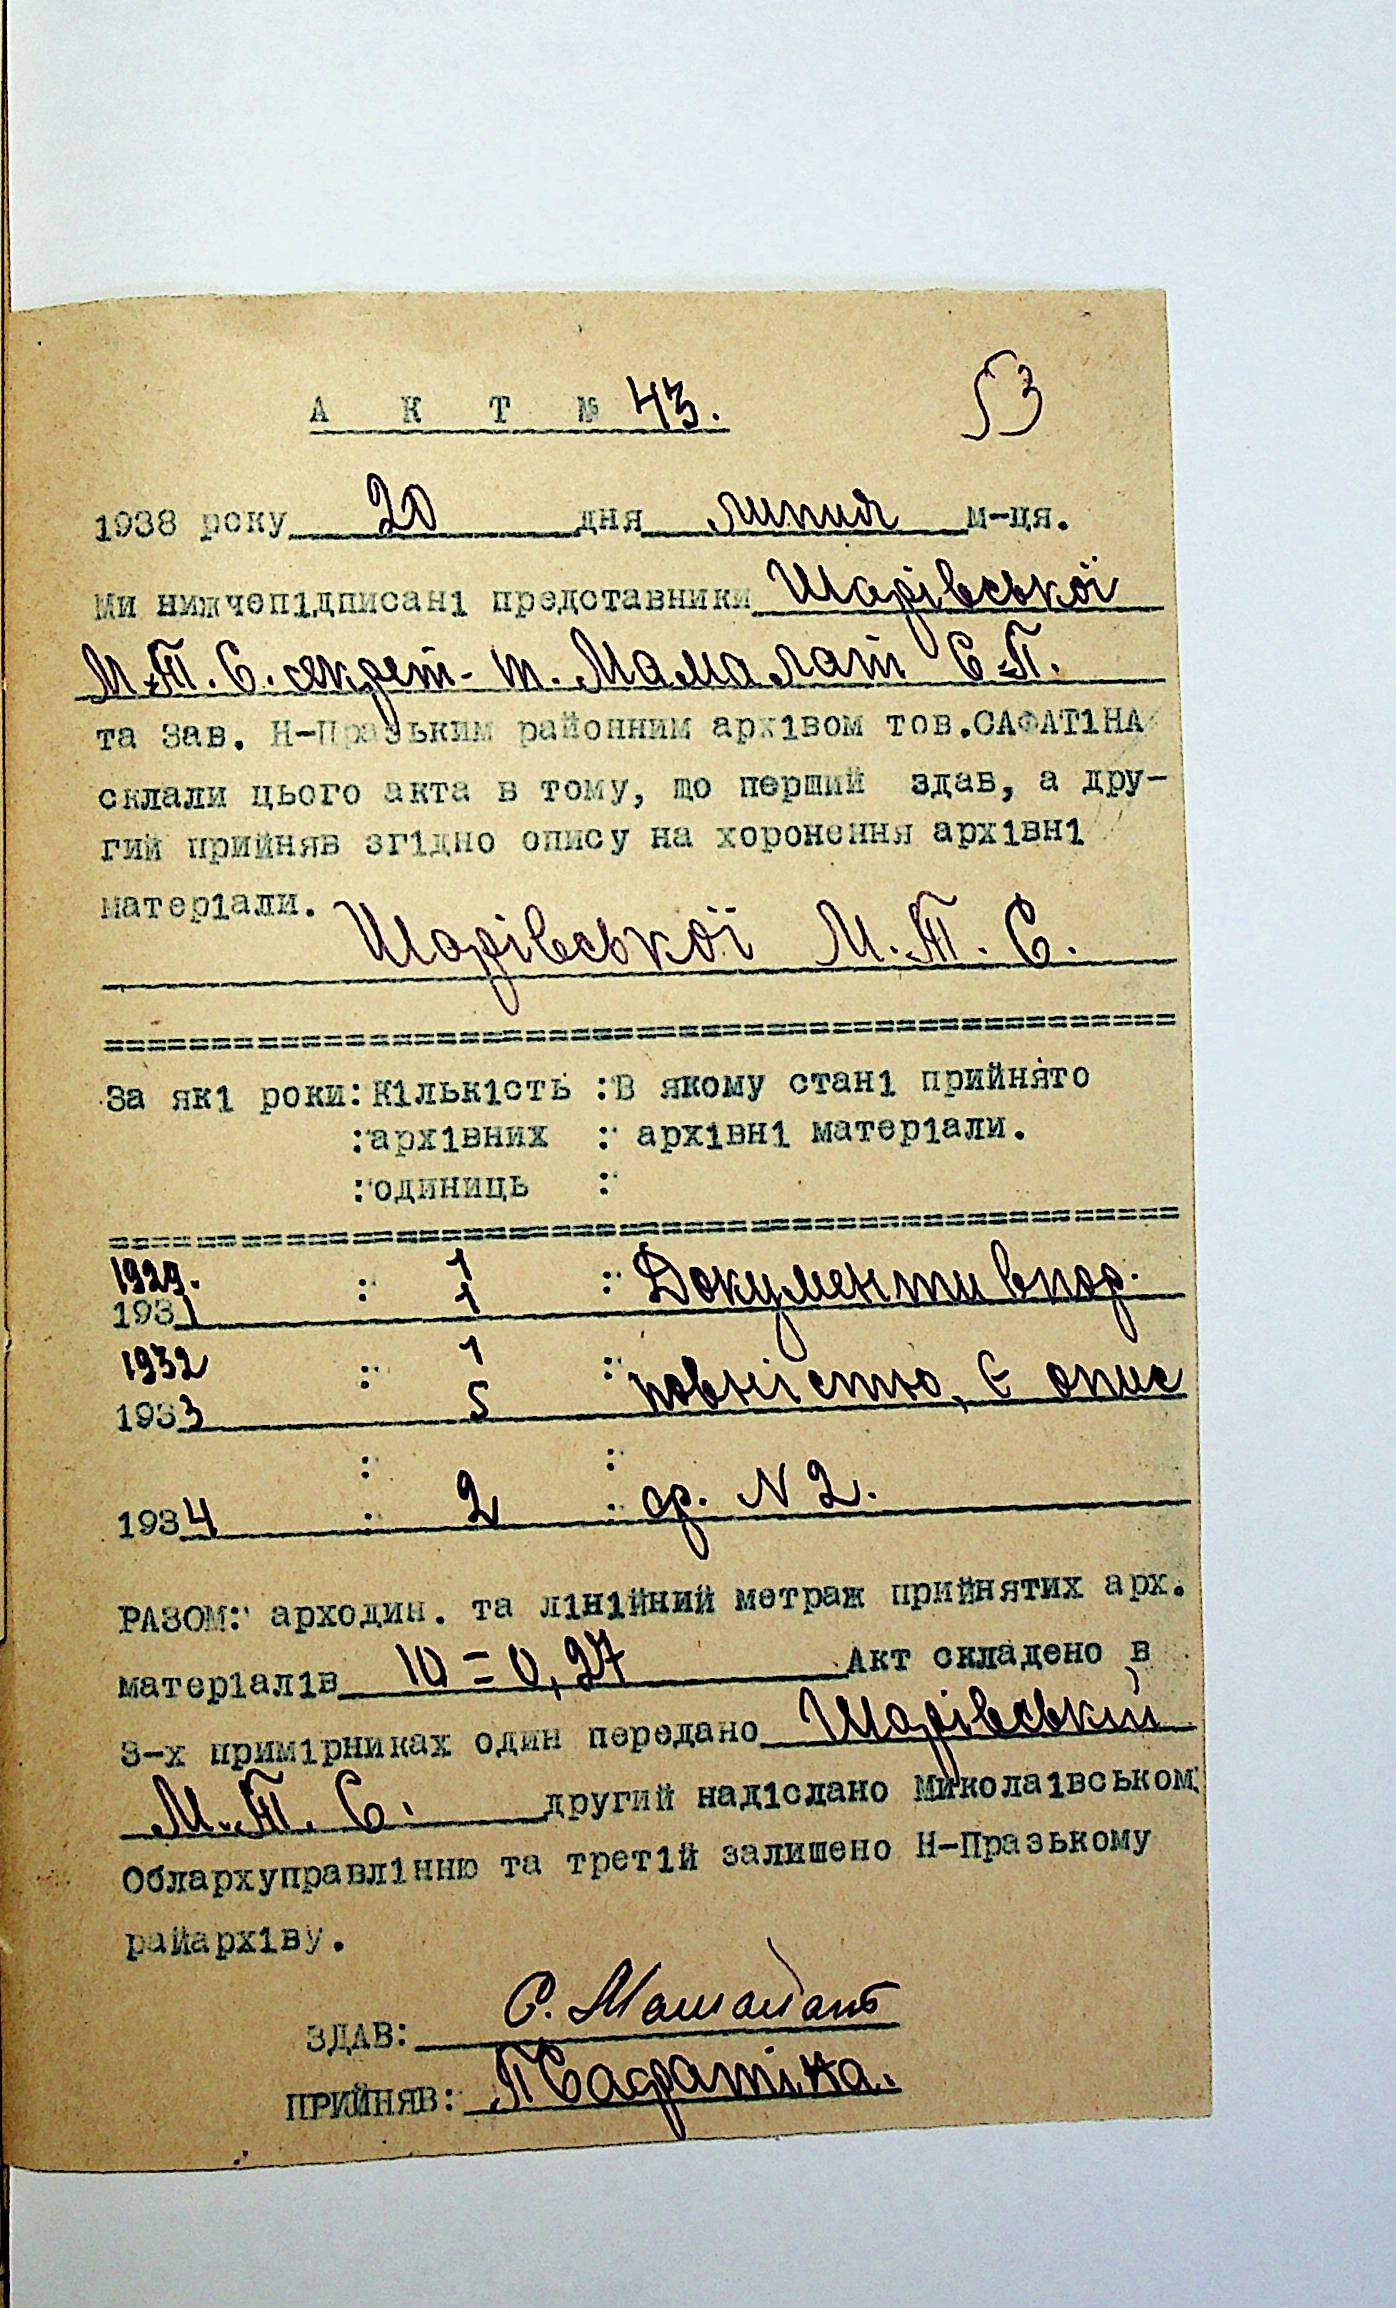 53
А К Т № 43.
1938 року 20 дня липня м-ця.
Ми нижчепідписані представники Шарівської
М.Т.С. секрет. т. Мамалат Є.П.
та Зав. Н-Празьким районним архівом тов.САФАТІНА
склали цього акта в тому, що перший здав, а дру-
гий прийняв згідно опису на хоронення архівні
матеріали.
Шарівської М.Т.С.
За які роки: Кількість : В якому стані прийнято
: архівних : архівні матеріали.
: одиниць :
1929. : 1 : Документи впор.
1931 1
1932 : 1 :
1933 5 повністю, є опис
: :
1934 : 2 : ф. N 2.
РАЗОМ: арходин. та лінійний метраж прийнятих арх.
матеріалів 10 = 0,27 Акт складено в
3-х примірниках один передано Шарівській
М.Т.С. другий надіслано Миколаівськом
Облархуправлінню та третій залишено Н-Празькому
райархіву.
ЗДАВ: С.
ПРИЙНЯВ: П Сафатіна.